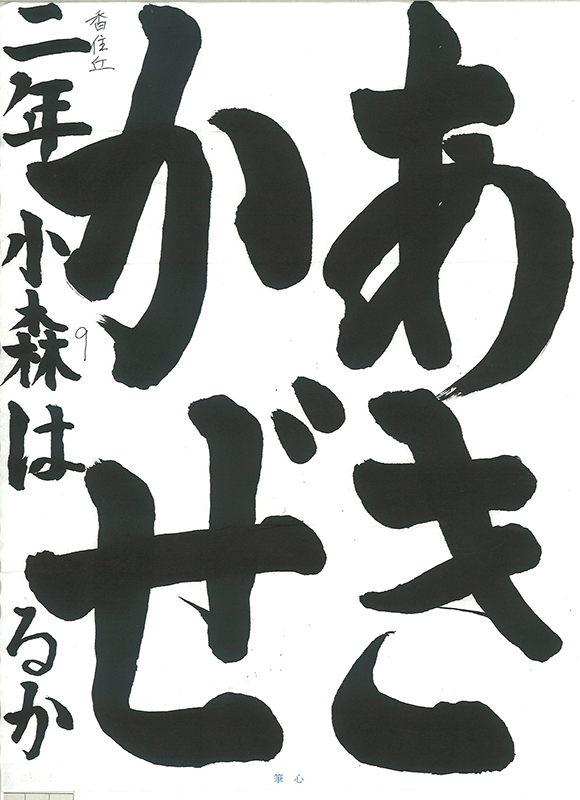 あき
かぜ
香住丘
二年 小森はるか
9
筆心